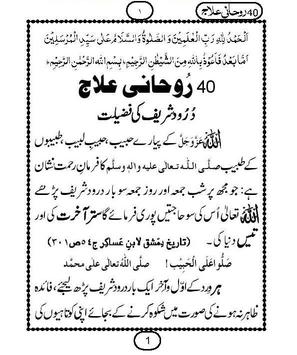 40 روحانی علاج
۱
اَلْحَمْدُ لِلّٰهِ رَبِّ الْعٰلَمِيْنَ وَ الصَّلٰوةُ وَ السَّلَامُ عَلٰى سَيِّدِ الْمُرْسَلِيْنَ
اَمَّا بَعْدُ فَاَعُوْذُ بِاللّٰهِ مِنَ الشَّيْطٰنِ الرَّجِيْمِ ؕ بِسْمِ اللّٰهِ الرَّحْمٰنِ الرَّحِيْمِ ؕ
40 رُوحانی علاج
دُرُود شریف کی فضیلت
اللّٰه عَزَّوَجَلَّ کے پیارے حبیب، حبیبِ لبیب، طبیبوں
کے طبیب صلَّى اللّٰه تعالٰى عليه واٰلهٖ وسلَّم کا فرمانِ رحمت نشان
ہے: جو مجھ پر شبِ جمعہ اور روزِ جمعہ سو بار درود شریف پڑھے
اللّٰه تعالٰی اُس کی سو حاجتیں پوری فرمائے گا ستّر آخرت کی اور
تیس دنیا کی۔ (تاریخ دمشق لابن عساکر ج٥٤ ص٣٠١)
صَلُّوا عَلَى الْحَبِيْب! صلَّى اللّٰهُ تعالٰى على محمَّد
ہر وِرد کے اوّل و آخر ایک بار درود شریف پڑھ لیجئے، فائدہ
ظاہر نہ ہونے کی صورت میں شکوہ کرنے کے بجائے اپنی کوتاہیوں کی
1